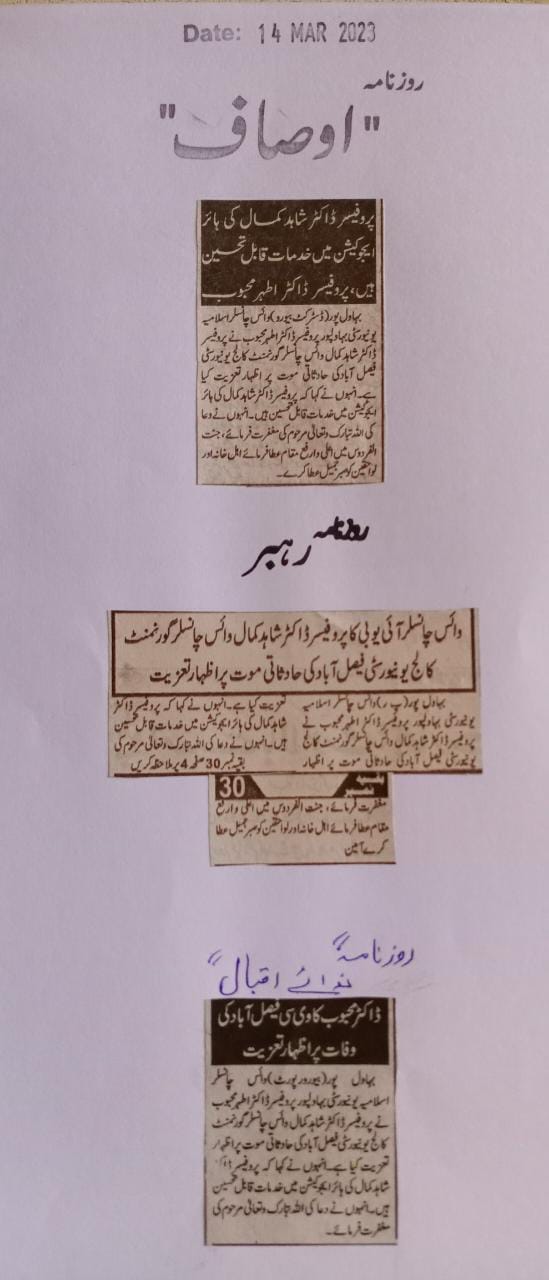 Date: 14 MAR 2023
روزنامہ
"اوصاف"
پروفیسر ڈاکٹر شاہد کمال کی ہائر
ایجوکیشن میں خدمات قابل تحسین
ہیں، پروفیسر ڈاکٹر اطہر محبوب
بہاول پور (ڈسٹرکٹ بیورو) وائس چانسلر اسلامیہ
یونیورسٹی بہاولپور پروفیسر ڈاکٹر اطہر محبوب نے پروفیسر
ڈاکٹر شاہد کمال وائس چانسلر گورنمنٹ کالج یونیورسٹی
فیصل آباد کی حادثاتی موت پر اظہار تعزیت کیا
ہے۔ انہوں نے کہا کہ پروفیسر ڈاکٹر شاہد کمال کی ہائر
ایجوکیشن میں خدمات قابل تحسین ہیں۔ انہوں نے دعا
کی اللہ تبارک وتعالیٰ مرحوم کی مغفرت فرمائے، جنت
الفردوس میں اعلیٰ وارفع مقام عطا فرمائے اہل خانہ اور
لواحقین کو صبر جمیل عطا کرے۔
روزنامہ رہبر
وائس چانسلر آئی یو بی کا پروفیسر ڈاکٹر شاہد کمال وائس چانسلر گورنمنٹ
کالج یونیورسٹی فیصل آباد کی حادثاتی موت پر اظہار تعزیت
بہاول پور (پ ر) وائس چانسلر اسلامیہ
یونیورسٹی بہاولپور پروفیسر ڈاکٹر اطہر محبوب نے
پروفیسر ڈاکٹر شاہد کمال وائس چانسلر گورنمنٹ کالج
یونیورسٹی فیصل آباد کی حادثاتی موت پر اظہار
تعزیت کیا ہے۔ انہوں نے کہا کہ پروفیسر ڈاکٹر
شاہد کمال کی ہائر ایجوکیشن میں خدمات قابل تحسین
ہیں۔ انہوں نے دعا کی اللہ تبارک وتعالیٰ مرحوم کی
بقیہ نمبر 30 صفحہ 4 پر ملاحظہ کریں
بقیہ نمبر 30
مغفرت فرمائے، جنت الفردوس میں اعلیٰ وارفع
مقام عطا فرمائے اہل خانہ اور لواحقین کو صبر جمیل عطا
کرے آمین
روزنامہ
"نوائے اقبال"
ڈاکٹر محبوب کا وی سی فیصل آباد کی
وفات پر اظہار تعزیت
بہاول پور (بیورو رپورٹ) وائس چانسلر
اسلامیہ یونیورسٹی بہاولپور پروفیسر ڈاکٹر اطہر محبوب
نے پروفیسر ڈاکٹر شاہد کمال وائس چانسلر گورنمنٹ
کالج یونیورسٹی فیصل آباد کی حادثاتی موت پر اظہار
تعزیت کیا ہے۔ انہوں نے کہا کہ پروفیسر ڈاکٹر
شاہد کمال کی ہائر ایجوکیشن میں خدمات قابل تحسین
ہیں۔ انہوں نے دعا کی اللہ تبارک وتعالیٰ مرحوم کی
مغفرت فرمائے۔